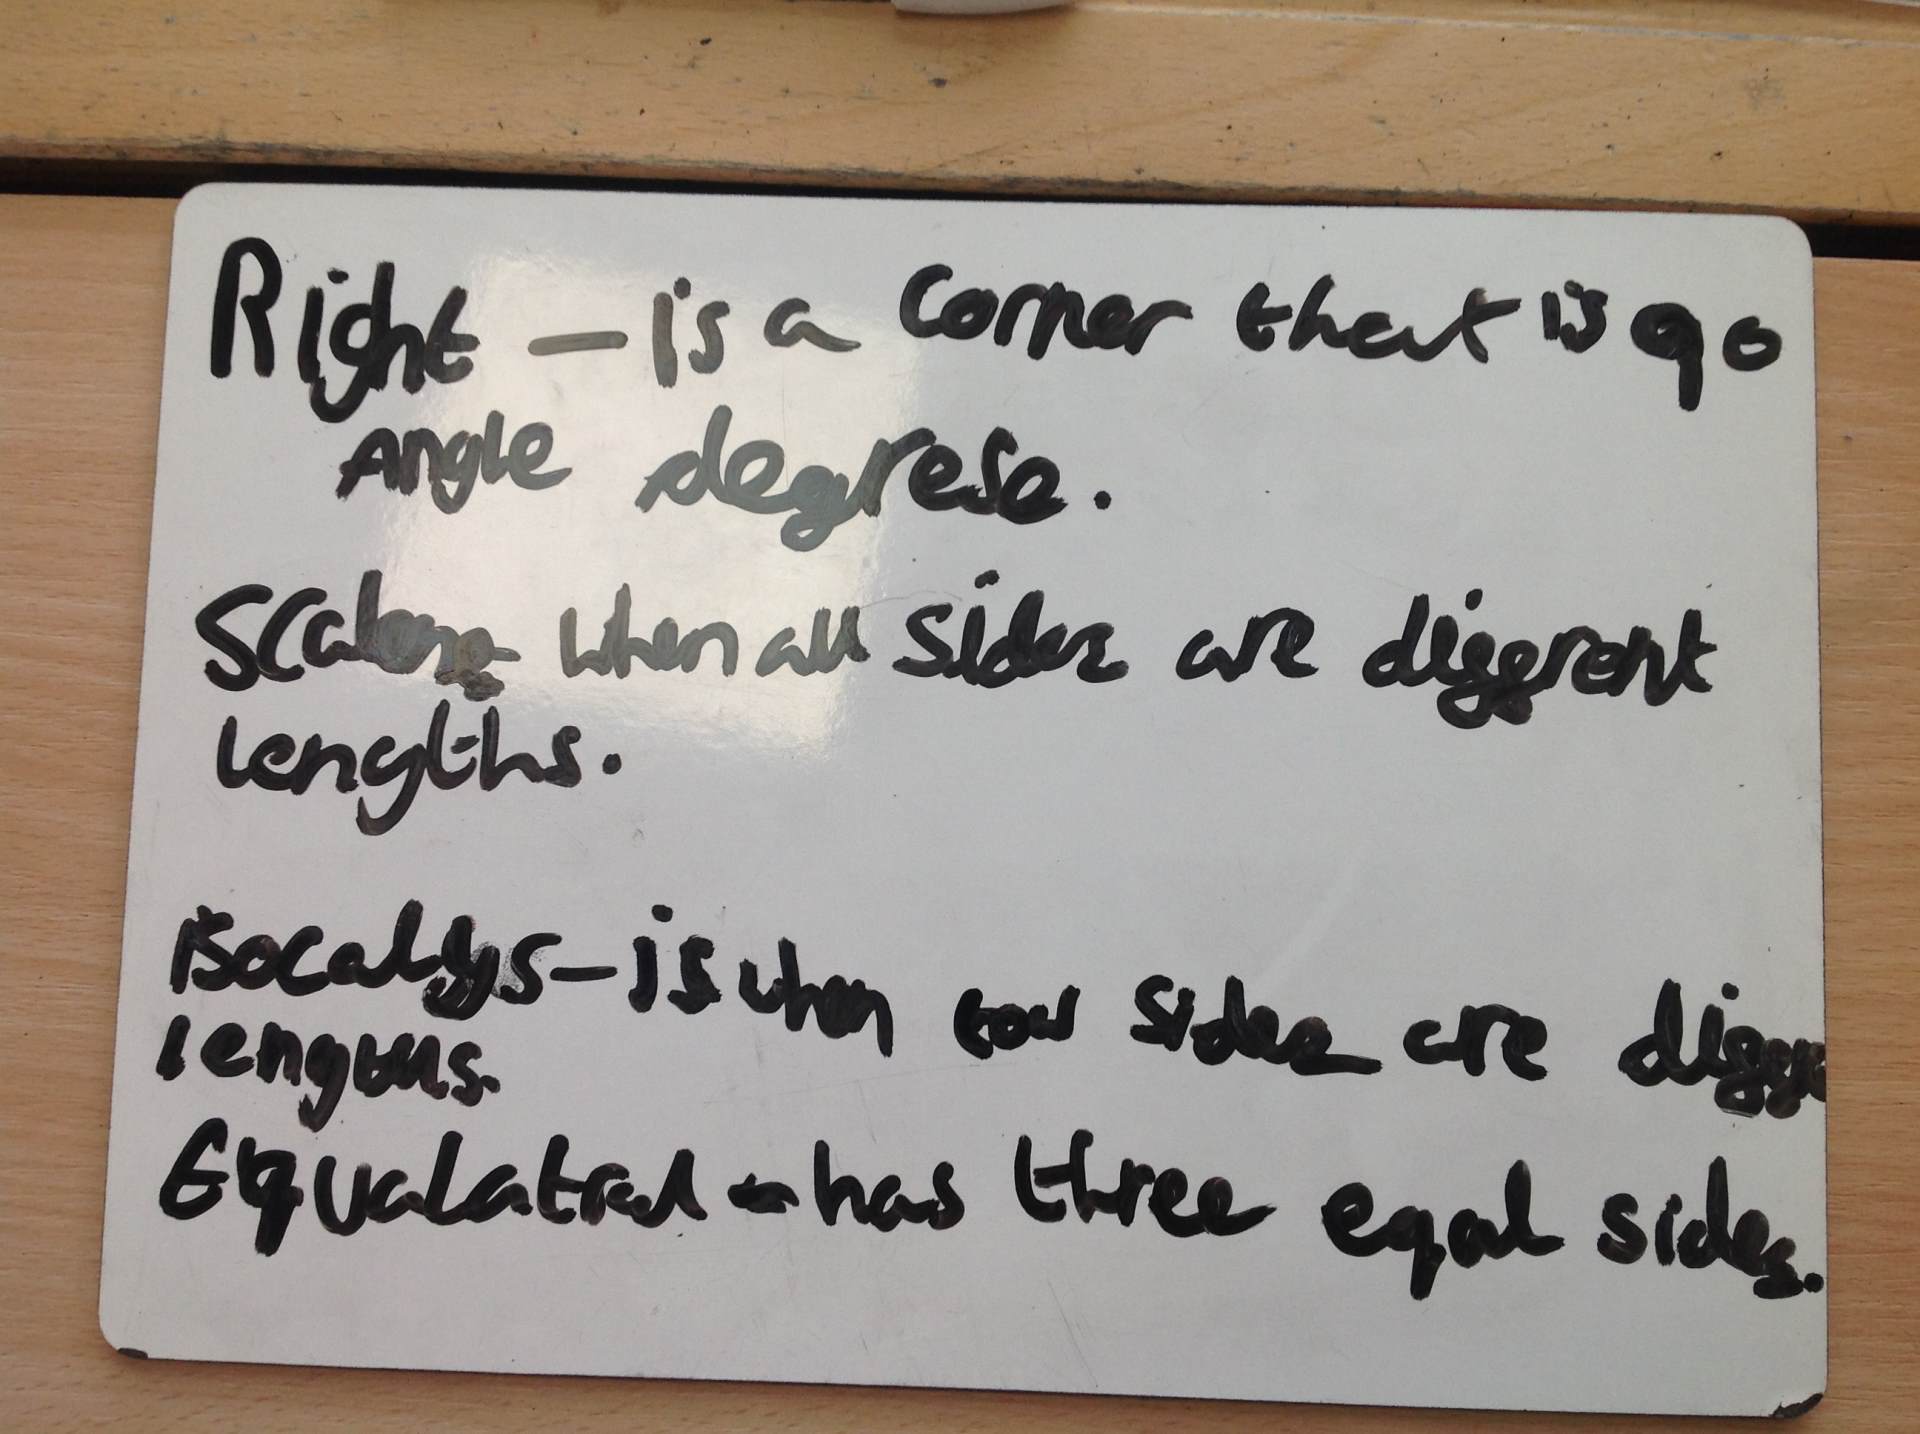 Right — is a corner that is 90
Angle degrese.
Scalene when all sides are diggrent
lengths.
isocallys — is when tow sides are diggre
lengths.
Equalatral - has three eqal sides.